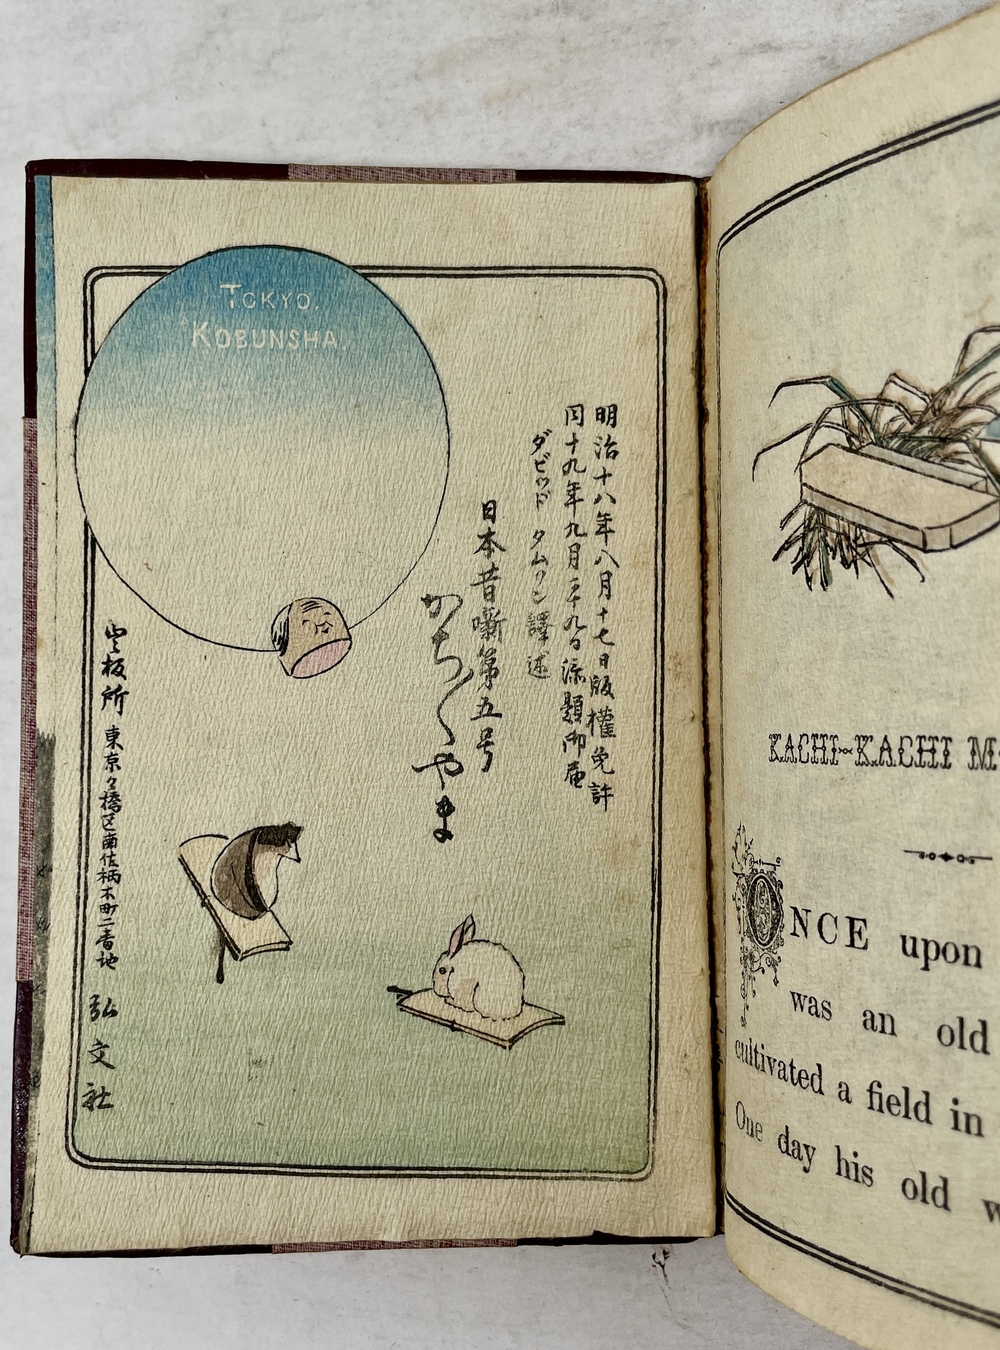 TOKYO.
KOBUNSHA.
明治十八年八月十七日版權免許
同十九年九月二十九日添題御届
ダビッド タムソン 譯述
日本昔噺第五号
かち〱やま
東京々橋区南佐柄木町二番地
弘文社
KACHI-KACHI M
ONCE upon
was an old
cultivated a field in
One day his old w